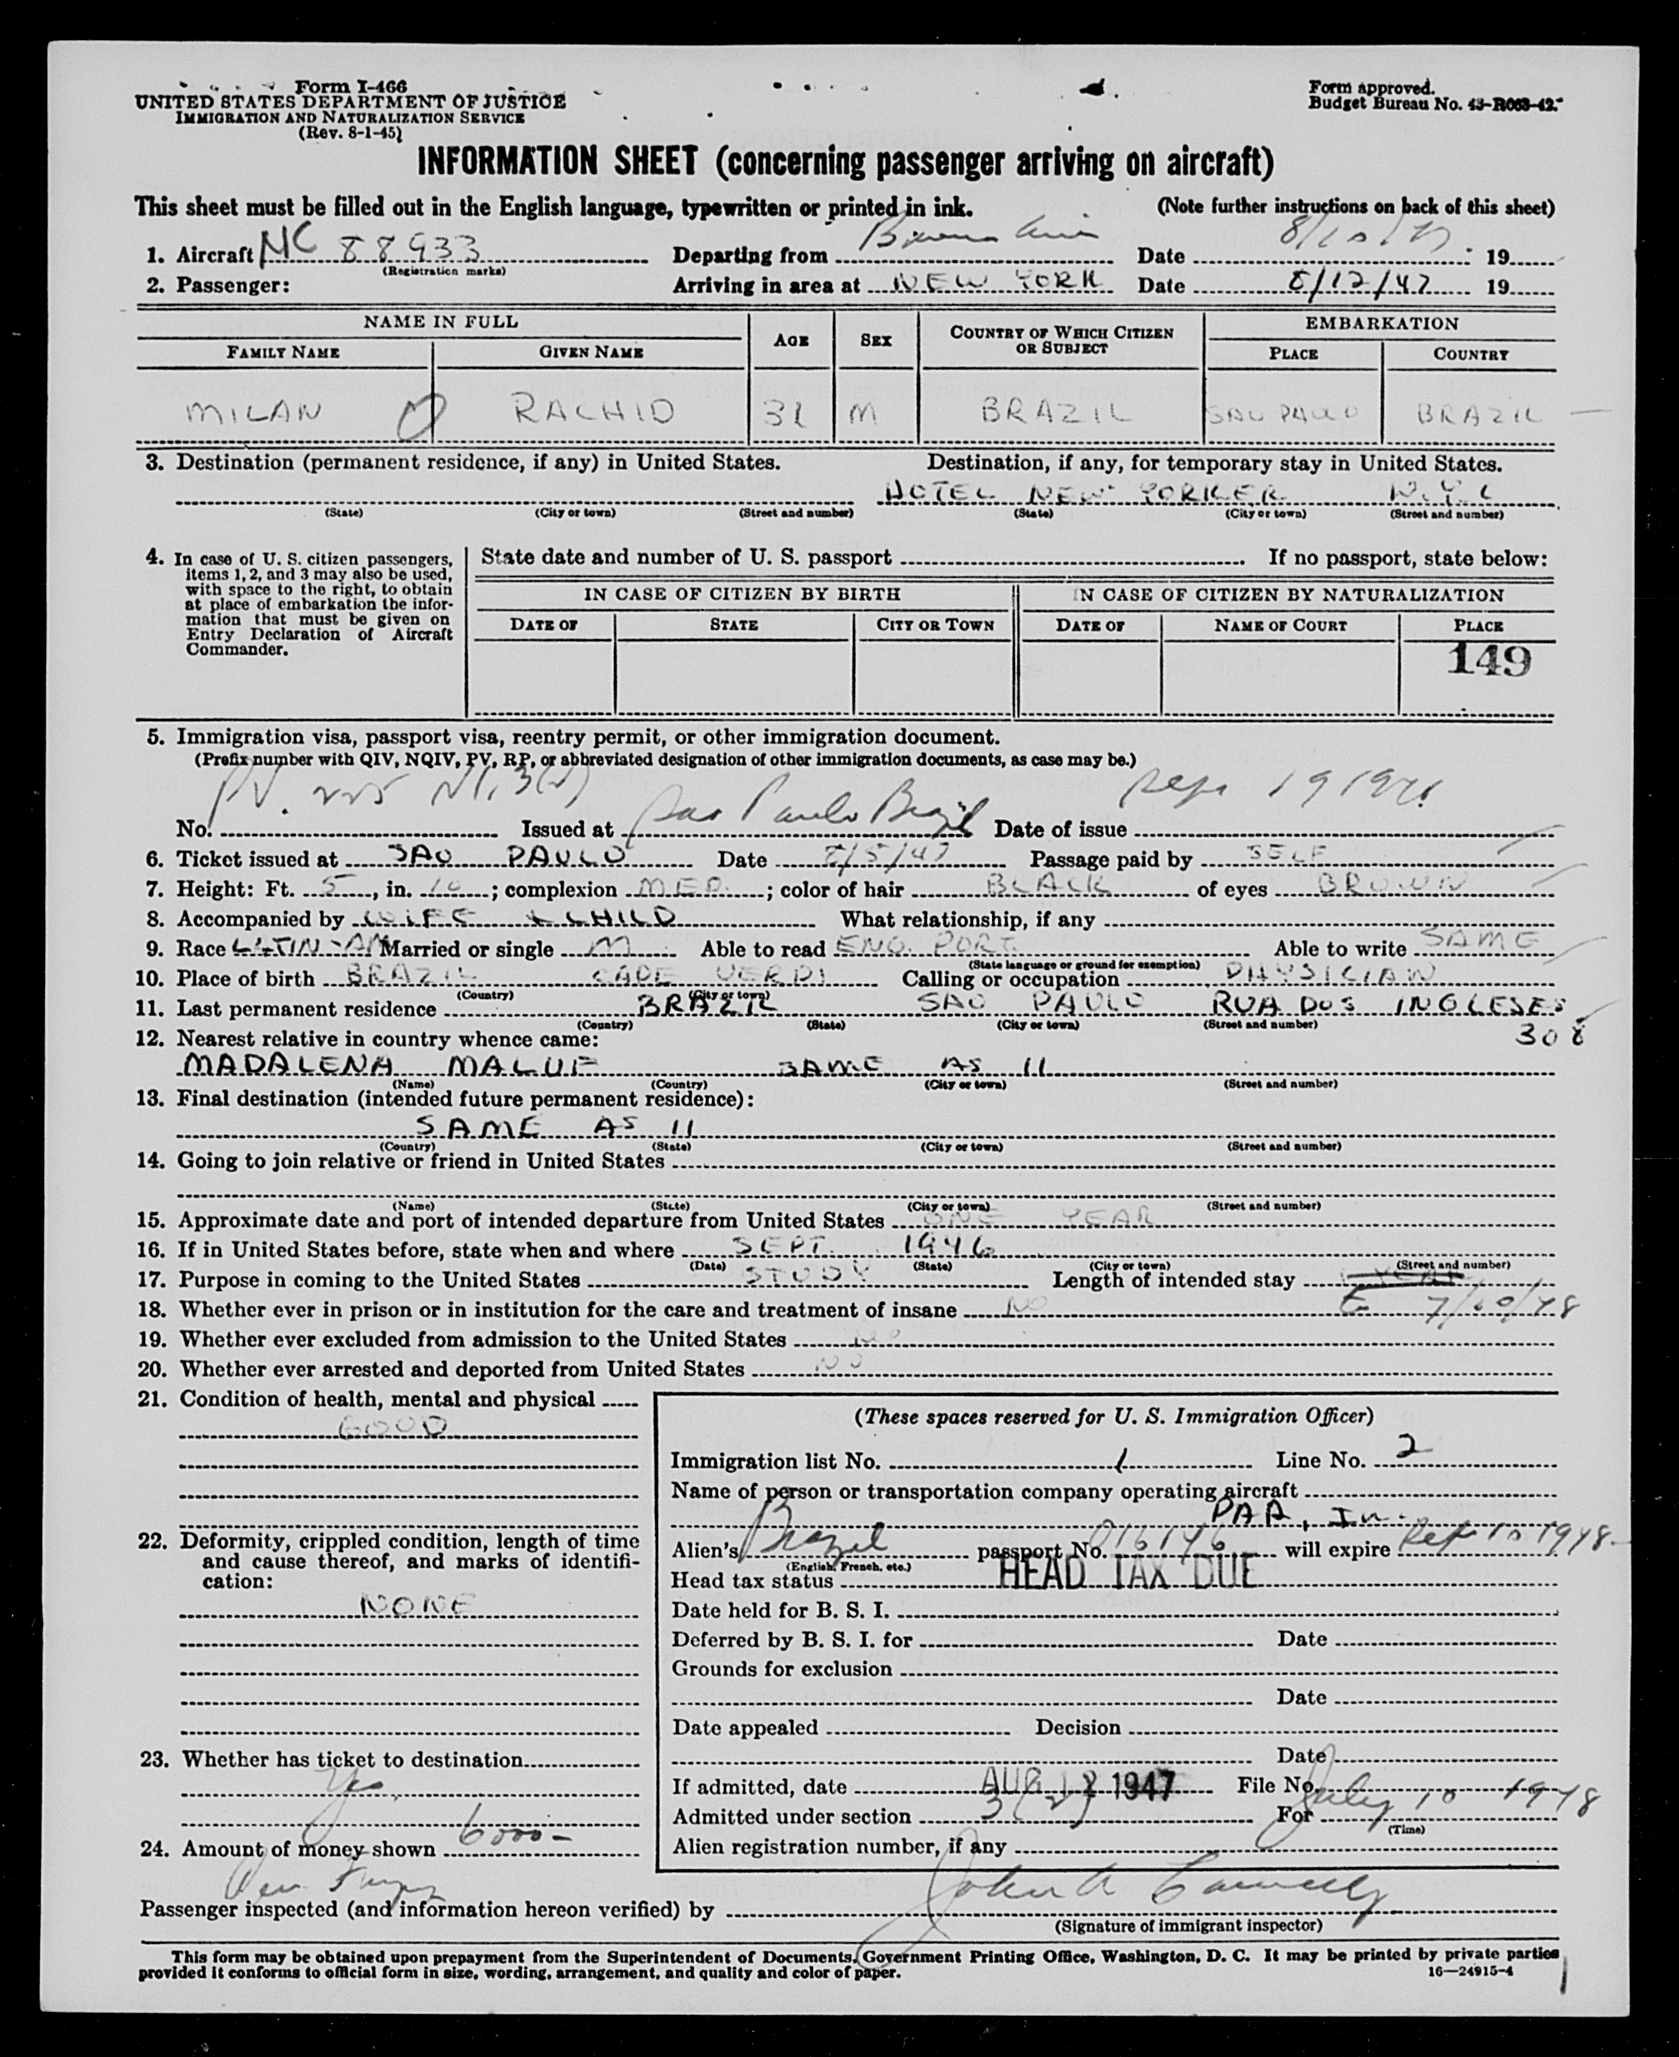 Form I-466
UNITED STATES DEPARTMENT OF JUSTICE
IMMIGRATION AND NATURALIZATION SERVICE
(Rev. 8-1-45)
Form approved.
Budget Bureau No. 43-R063-42.
INFORMATION SHEET (concerning passenger arriving on aircraft)
This sheet must be filled out in the English language, typewritten or printed in ink. (Note further instructions on back of this sheet)
1. Aircraft NC 88933 Departing from Date 19
(Registration marks)
2. Passenger: Arriving in area at NEW YORK Date 8/12/47 19
NAME IN FULL AGE SEX COUNTRY OF WHICH CITIZEN OR SUBJECT EMBARKATION
FAMILY NAME GIVEN NAME PLACE COUNTRY
MILAN RACHID M BRAZIL SAO PAULO BRAZIL
3. Destination (permanent residence, if any) in United States. Destination, if any, for temporary stay in United States.
HOTEL NEW YORKER N.Y.C
(State) (City or town) (Street and number) (State) (City or town) (Street and number)
4. In case of U. S. citizen passengers, items 1, 2, and 3 may also be used, with space to the right, to obtain at place of embarkation the information that must be given on Entry Declaration of Aircraft Commander.
State date and number of U. S. passport . If no passport, state below:
IN CASE OF CITIZEN BY BIRTH IN CASE OF CITIZEN BY NATURALIZATION
DATE OF STATE CITY OR TOWN DATE OF NAME OF COURT PLACE
149
5. Immigration visa, passport visa, reentry permit, or other immigration document.
(Prefix number with QIV, NQIV, PV, RP, or abbreviated designation of other immigration documents, as case may be.)
No. PV. 225 Issued at Sao Paulo Brazil Date of issue
6. Ticket issued at SAO PAULO Date 8/5/47 Passage paid by SELF
7. Height: Ft. 5, in. 10; complexion MED.; color of hair BLACK of eyes BROWN
8. Accompanied by WIFE & CHILD What relationship, if any
9. Race LATIN-AM Married or single M Able to read ENG. PORT. Able to write SAME
(State language or ground for exemption)
10. Place of birth BRAZIL CAPE VERDI Calling or occupation PHYSICIAN
(Country) (City or town)
11. Last permanent residence BRAZIL SAO PAULO RUA DOS INGLESES
(Country) (State) (City or town) (Street and number)
308
12. Nearest relative in country whence came:
MADALENA MALUF SAME AS 11
(Name) (Country) (City or town) (Street and number)
13. Final destination (intended future permanent residence):
SAME AS 11
(Country) (State) (City or town) (Street and number)
14. Going to join relative or friend in United States
(Name) (State) (City or town) (Street and number)
15. Approximate date and port of intended departure from United States ONE YEAR
16. If in United States before, state when and where SEPT. 1946
(Date) (State) (City or town) (Street and number)
17. Purpose in coming to the United States STUDY Length of intended stay
18. Whether ever in prison or in institution for the care and treatment of insane NO 7/10/48
19. Whether ever excluded from admission to the United States NO
20. Whether ever arrested and deported from United States NO
21. Condition of health, mental and physical
GOOD
22. Deformity, crippled condition, length of time and cause thereof, and marks of identification:
NONE
23. Whether has ticket to destination
Yes
24. Amount of money shown 6000-
(These spaces reserved for U. S. Immigration Officer)
Immigration list No. 1 Line No. 2
Name of person or transportation company operating aircraft
PAA, In.
Alien's Brazil passport No. 016146 will expire Sep 10 1948
(English, French, etc.)
Head tax status HEAD TAX DUE
Date held for B. S. I.
Deferred by B. S. I. for Date
Grounds for exclusion
Date
Date appealed Decision
Date
If admitted, date AUG 12 1947 File No.
Admitted under section 3(2) For July 10 1948
(Time)
Alien registration number, if any
Passenger inspected (and information hereon verified) by John A
(Signature of immigrant inspector)
This form may be obtained upon prepayment from the Superintendent of Documents, Government Printing Office, Washington, D. C. It may be printed by private parties
provided it conforms to official form in size, wording, arrangement, and quality and color of paper. 16—24915-4